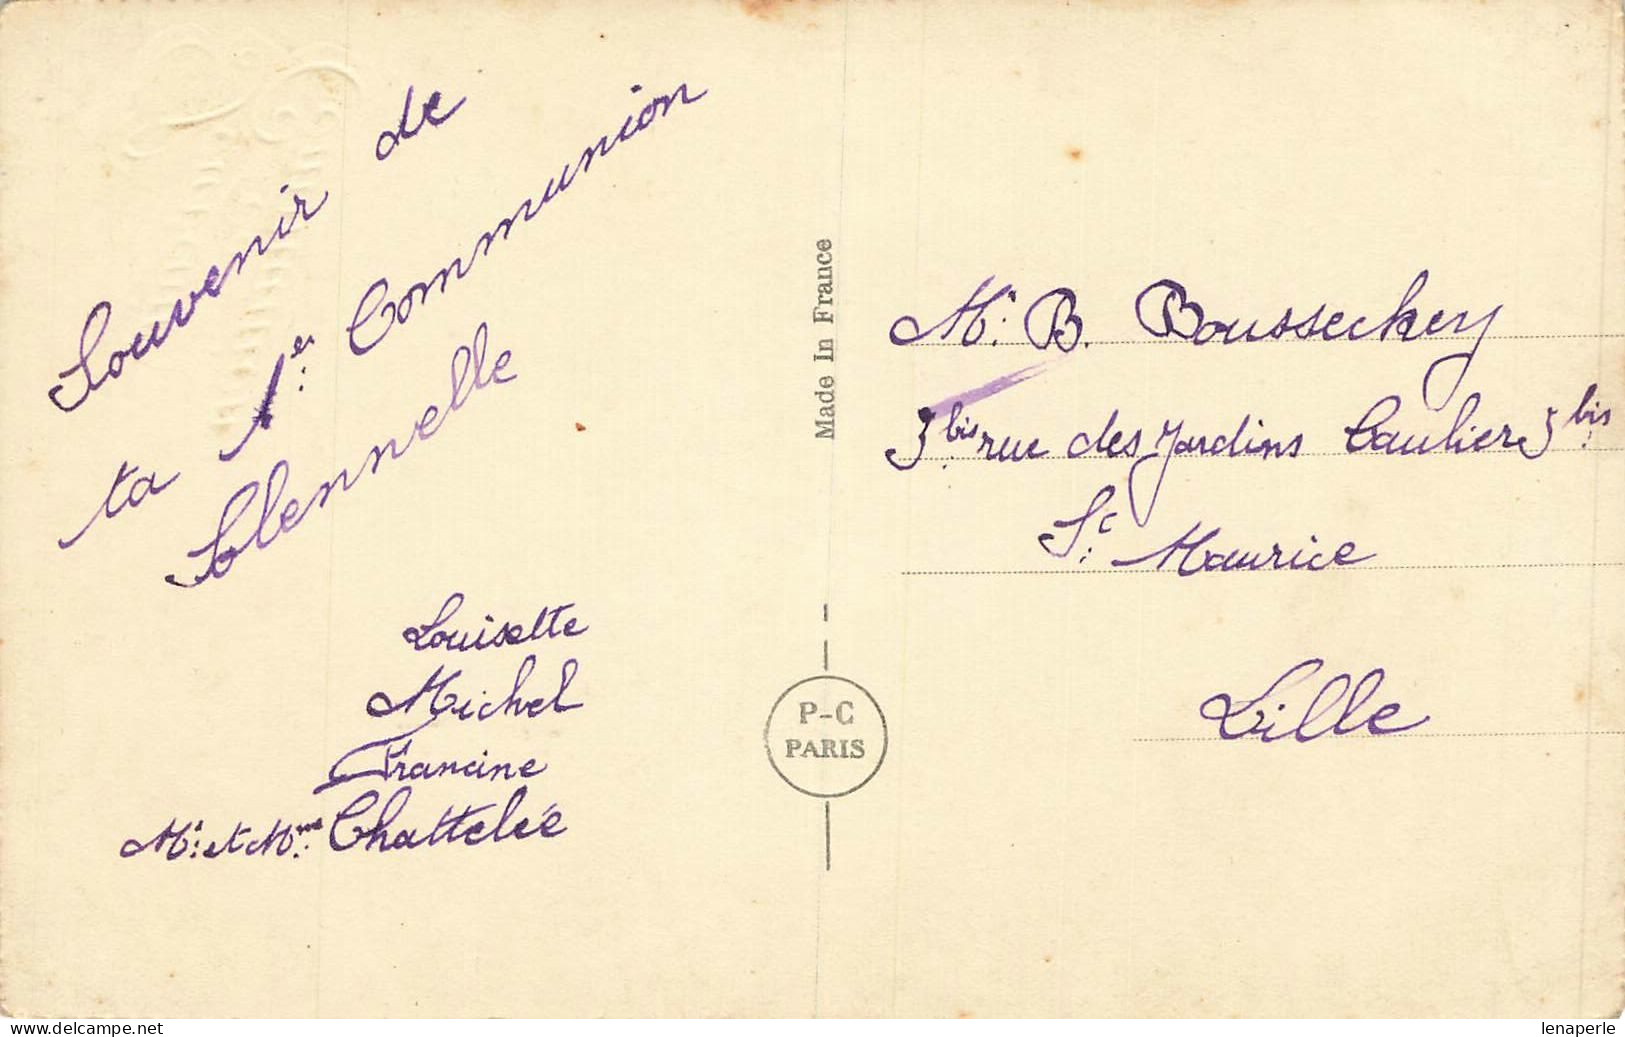 Souvenir de
ta 1er Communion
Solennelle
Louisette
Michel
Francine
Mr et Mme Chattelée
Made In France
P-C
PARIS
Mr B. Boussechey
3 bis rue des Jardins Caulier 3 bis
St Maurice
Lille
www.delcampe.net
lenaperle